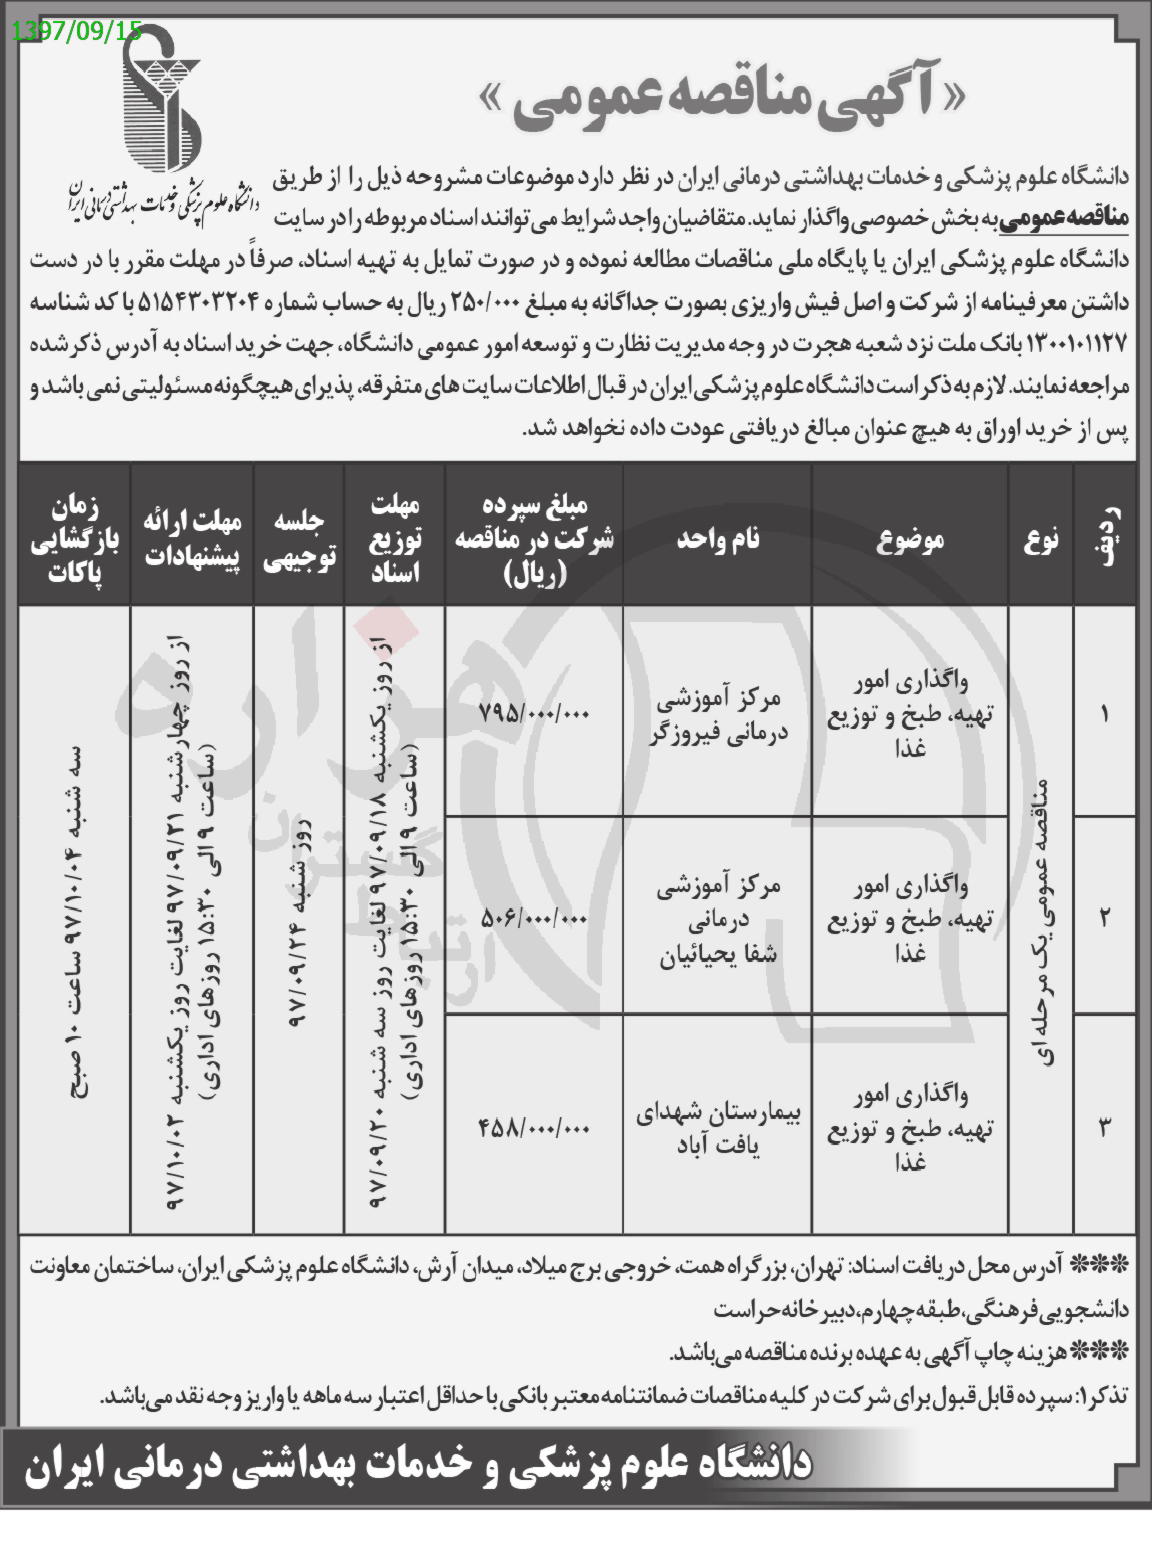 1397/09/15
« آگهی مناقصه عمومی »
دانشگاه علوم پزشکی و خدمات بهداشتی درمانی ایران
دانشگاه علوم پزشکی و خدمات بهداشتی درمانی ایران در نظر دارد موضوعات مشروحه ذیل را از طریق
مناقصه عمومی به بخش خصوصی واگذار نماید. متقاضیان واجد شرایط می توانند اسناد مربوطه را در سایت
دانشگاه علوم پزشکی ایران یا پایگاه ملی مناقصات مطالعه نموده و در صورت تمایل به تهیه اسناد، صرفاً در مهلت مقرر با در دست
داشتن معرفینامه از شرکت و اصل فیش واریزی بصورت جداگانه به مبلغ ۲۵۰/۰۰۰ ریال به حساب شماره ۵۱۵۴۳۰۳۲۰۴ با کد شناسه
۱۳۰۰۱۰۱۱۲۷ بانک ملت نزد شعبه هجرت در وجه مدیریت نظارت و توسعه امور عمومی دانشگاه، جهت خرید اسناد به آدرس ذکر شده
مراجعه نمایند. لازم به ذکر است دانشگاه علوم پزشکی ایران در قبال اطلاعات سایت های متفرقه، پذیرای هیچگونه مسئولیتی نمی باشد و
پس از خرید اوراق به هیچ عنوان مبالغ دریافتی عودت داده نخواهد شد.
ردیف
نوع
موضوع
نام واحد
مبلغ سپرده
شرکت در مناقصه
(ریال)
مهلت
توزیع
اسناد
جلسه
توجیهی
مهلت ارائه
پیشنهادات
زمان
بازگشایی
پاکات
۱
مناقصه عمومی یک مرحله ای
واگذاری امور
تهیه، طبخ و توزیع
غذا
مرکز آموزشی
درمانی فیروزگر
۷۹۵/۰۰۰/۰۰۰
از روز یکشنبه ۹۷/۰۹/۱۸ لغایت روز سه شنبه ۹۷/۰۹/۲۰
(ساعت ۹ الی ۱۵:۳۰ روزهای اداری)
روز شنبه ۹۷/۰۹/۲۴
از روز چهارشنبه ۹۷/۰۹/۲۱ لغایت روز یکشنبه ۹۷/۱۰/۰۲
(ساعت ۹ الی ۱۵:۳۰ روزهای اداری)
سه شنبه ۹۷/۱۰/۰۴ ساعت ۱۰ صبح
۲
واگذاری امور
تهیه، طبخ و توزیع
غذا
مرکز آموزشی
درمانی
شفا یحیائیان
۵۰۶/۰۰۰/۰۰۰
۳
واگذاری امور
تهیه، طبخ و توزیع
غذا
بیمارستان شهدای
یافت آباد
۴۵۸/۰۰۰/۰۰۰
هزاره
*** آدرس محل دریافت اسناد: تهران، بزرگراه همت، خروجی برج میلاد، میدان آرش، دانشگاه علوم پزشکی ایران، ساختمان معاونت
دانشجویی فرهنگی، طبقه چهارم، دبیرخانه حراست
*** هزینه چاپ آگهی به عهده برنده مناقصه می باشد.
تذکر۱: سپرده قابل قبول برای شرکت در کلیه مناقصات ضمانتنامه معتبر بانکی با حداقل اعتبار سه ماهه یا واریز وجه نقد می باشد.
دانشگاه علوم پزشکی و خدمات بهداشتی درمانی ایران